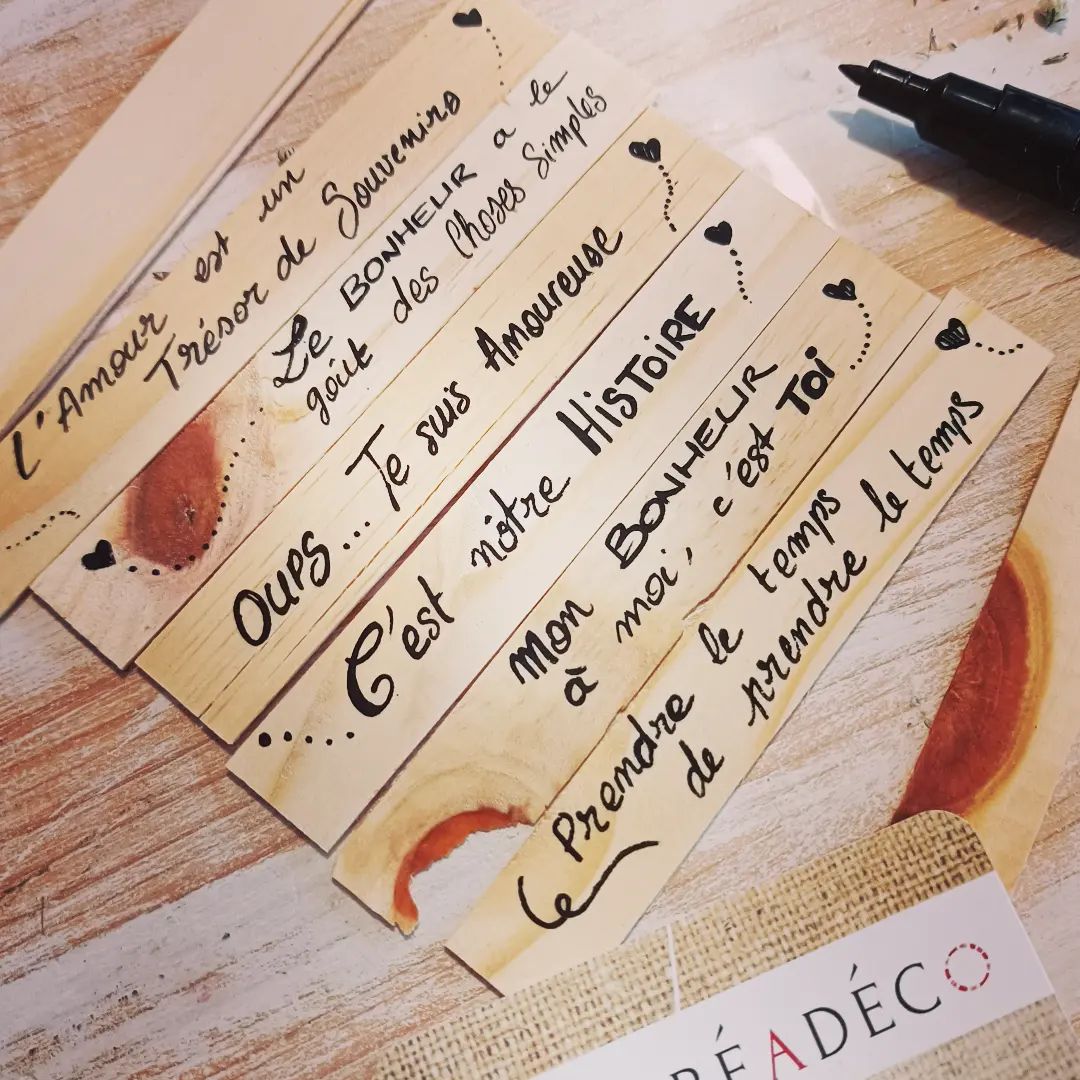 L'Amour est un
Trésor de Souvenirs
Le BONHEUR a le
goût des Choses Simples
OUPS... Je suis Amoureuse
C'est nôtre HISTOIRE
Mon BONHEUR
à moi, c'est TOI
Prendre le temps
de prendre le temps
ÉADÉCO